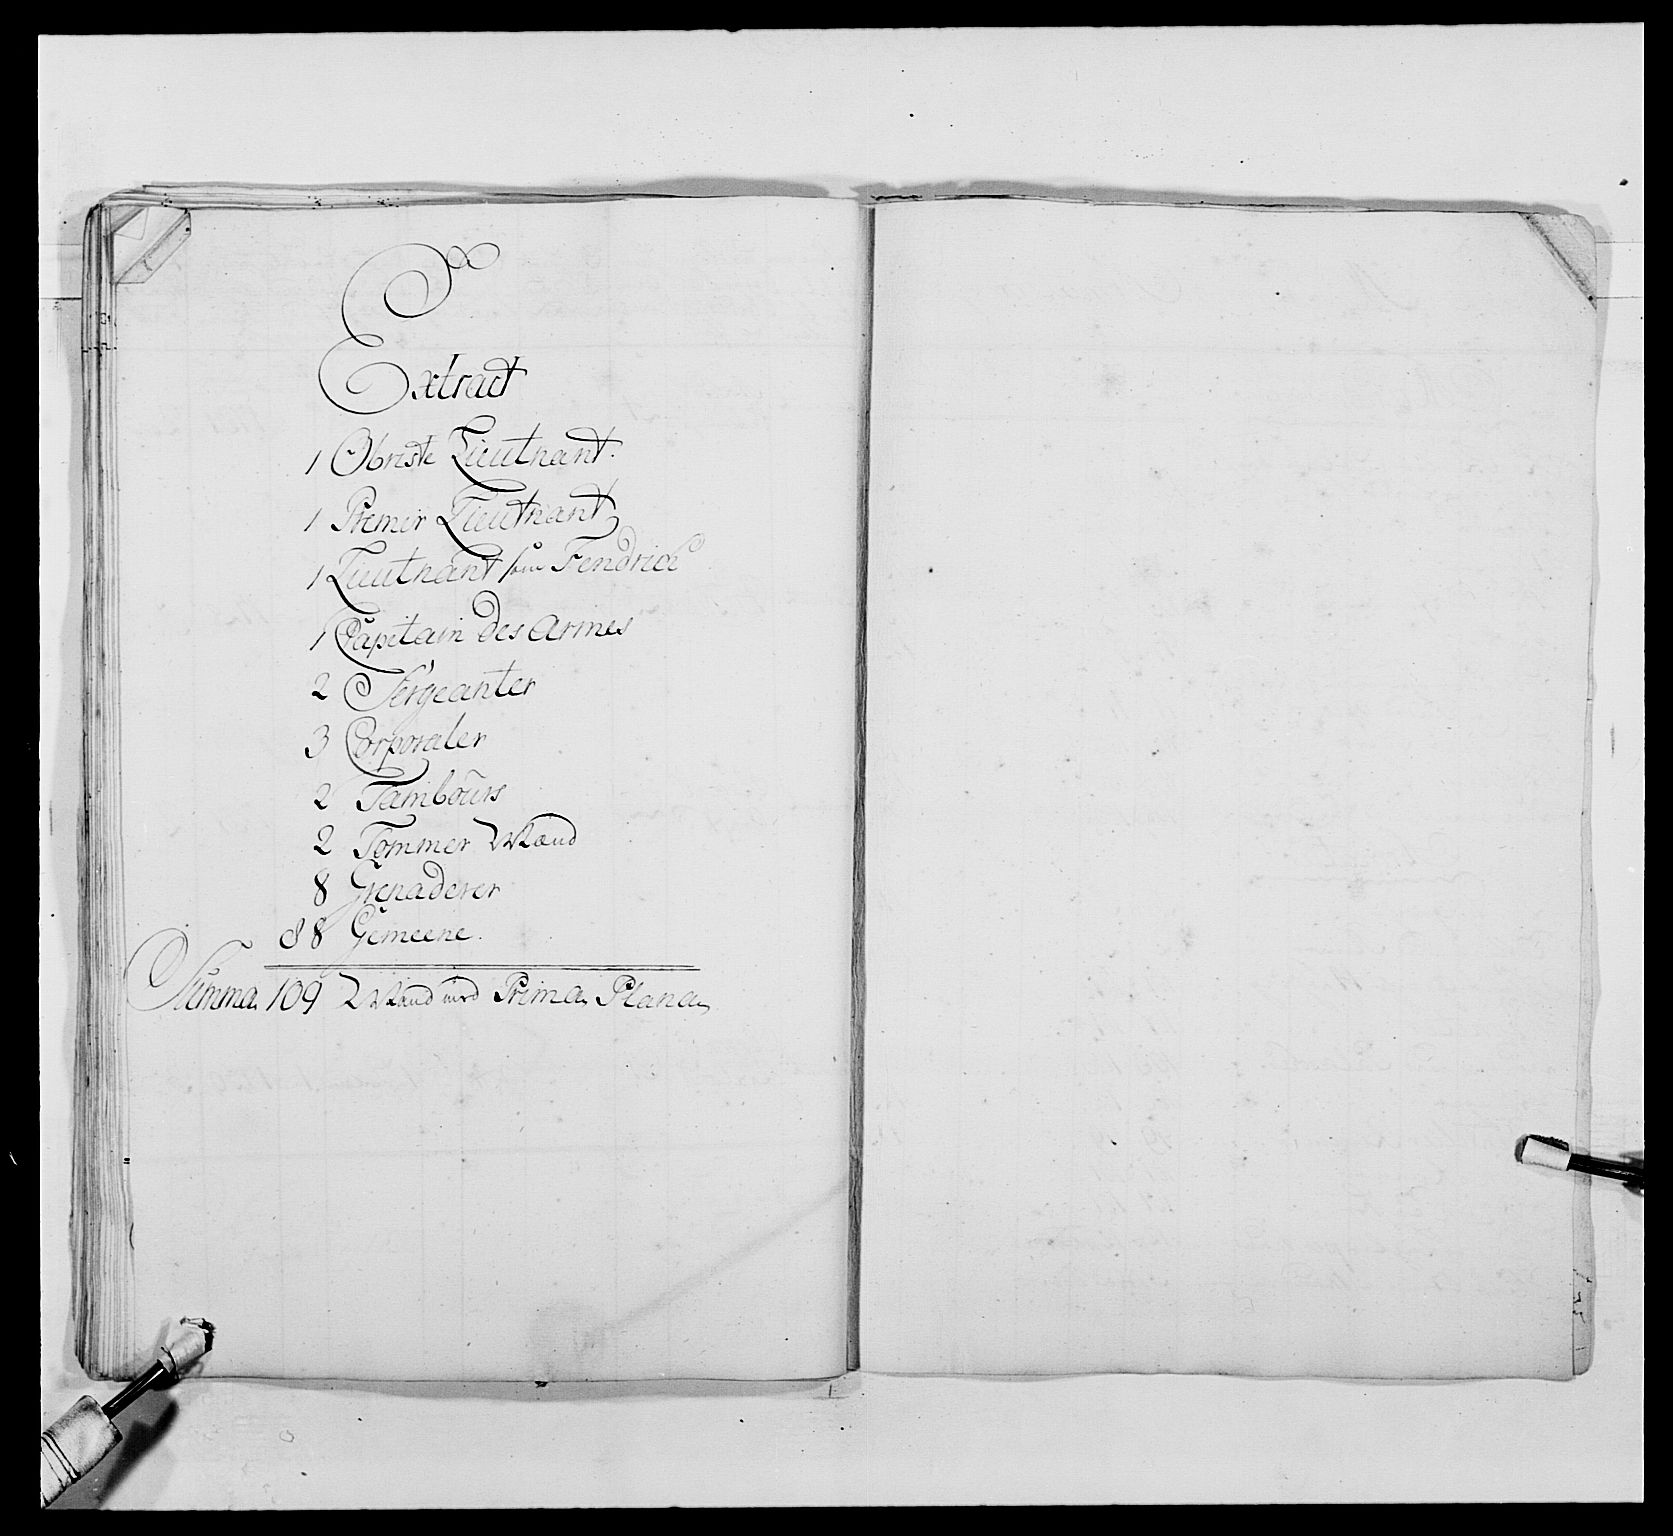 Extract
1 Obriste Lieutnant.
1 Premir Lieutnant
1 Lieutnant som Fendrich
1 Capitain des Armes
2 Sergeanter
3 Corporaler
2 Tambours
2 Tømmer Mænd
8 Grenaderer
88 Gemeene.
Summa 109 Mand med Prima Plana